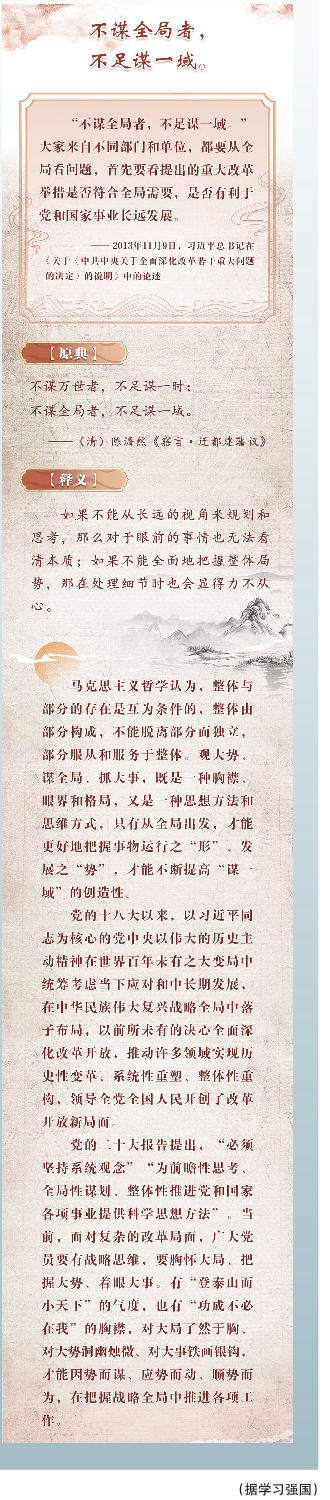 不谋全局者，
不足谋一域。
“不谋全局者，不足谋一域。”
大家来自不同部门和单位，都要从全
局看问题，首先要看提出的重大改革
举措是否符合全局需要，是否有利于
党和国家事业长远发展。
——2013年11月9日，习近平总书记在
《关于〈中共中央关于全面深化改革若干重大问题
的决定〉的说明》中的论述
【原典】
不谋万世者，不足谋一时；
不谋全局者，不足谋一域。
——（清）陈澹然《寤言·迁都建藩议》
【释义】
如果不能从长远的视角来规划和
思考，那么对于眼前的事情也无法看
清本质；如果不能全面地把握整体局
势，那在处理细节时也会显得力不从
心。
马克思主义哲学认为，整体与
部分的存在是互为条件的，整体由
部分构成，不能脱离部分而独立，
部分服从和服务于整体。观大势、
谋全局、抓大事，既是一种胸襟、
眼界和格局，又是一种思想方法和
思维方式，只有从全局出发，才能
更好地把握事物运行之“形”、发
展之“势”，才能不断提高“谋一
域”的创造性。
党的十八大以来，以习近平同
志为核心的党中央以伟大的历史主
动精神在世界百年未有之大变局中
统筹考虑当下应对和中长期发展，
在中华民族伟大复兴战略全局中落
子布局，以前所未有的决心全面深
化改革开放，推动许多领域实现历
史性变革、系统性重塑、整体性重
构，领导全党全国人民开创了改革
开放新局面。
党的二十大报告提出，“必须
坚持系统观念”“为前瞻性思考、
全局性谋划、整体性推进党和国家
各项事业提供科学思想方法”。当
前，面对复杂的改革局面，广大党
员要有战略思维，要胸怀大局、把
握大势、着眼大事。有“登泰山而
小天下”的气度，也有“功成不必
在我”的胸襟，对大局了然于胸、
对大势洞幽烛微、对大事铁画银钩，
才能因势而谋、应势而动、顺势而
为，在把握战略全局中推进各项工
作。
（据学习强国）